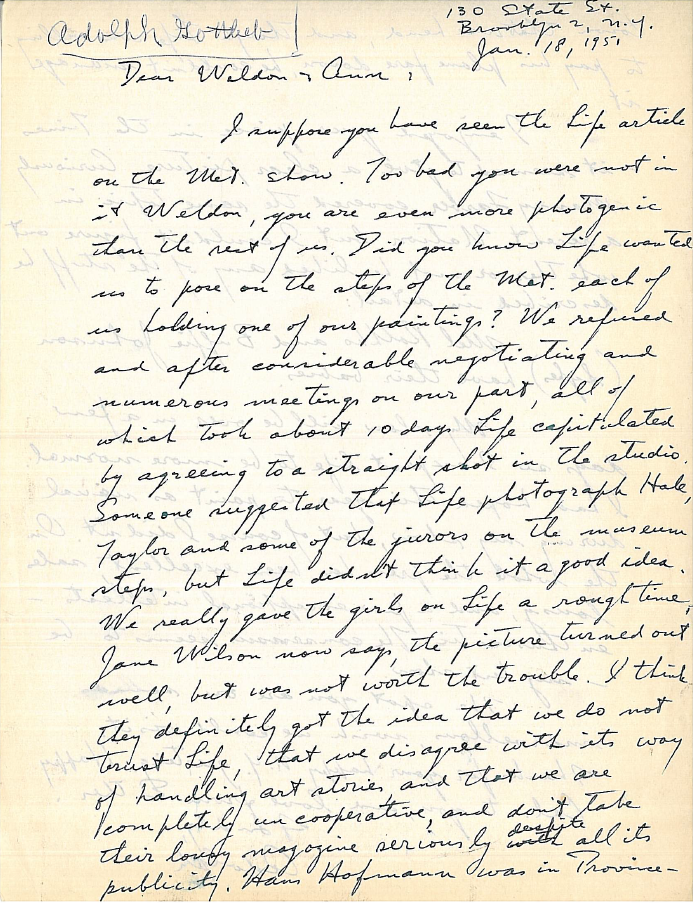 Adolph Gottlieb
130 State St.
Brooklyn 2, N.Y.
Jan. 18, 1951
Dear Weldon & Ann,
I suppose you have seen the Life article
on the Met. show. Too bad you were not in
it Weldon, you are even more photogenic
than the rest of us. Did you know Life wanted
us to pose on the steps of the Met. each of
us holding one of our paintings? We refused
and after considerable negotiating and
numerous meetings on our part, all of
which took about 10 days Life capitulated
by agreeing to a straight shot in the studio.
Someone suggested that Life photograph Hale,
Taylor and some of the jurors on the museum
steps, but Life didn't think it a good idea.
We really gave the girls on Life a rough time,
Jane Wilson now says, the picture turned out
well, but was not worth the trouble. I think
they definitely got the idea that we do not
trust Life, that we disagree with its way
of handling art stories and that we are
completely uncooperative, and don't take
their lousy magazine seriously with despite all its
publicity. Hans Hofmann was in Province-